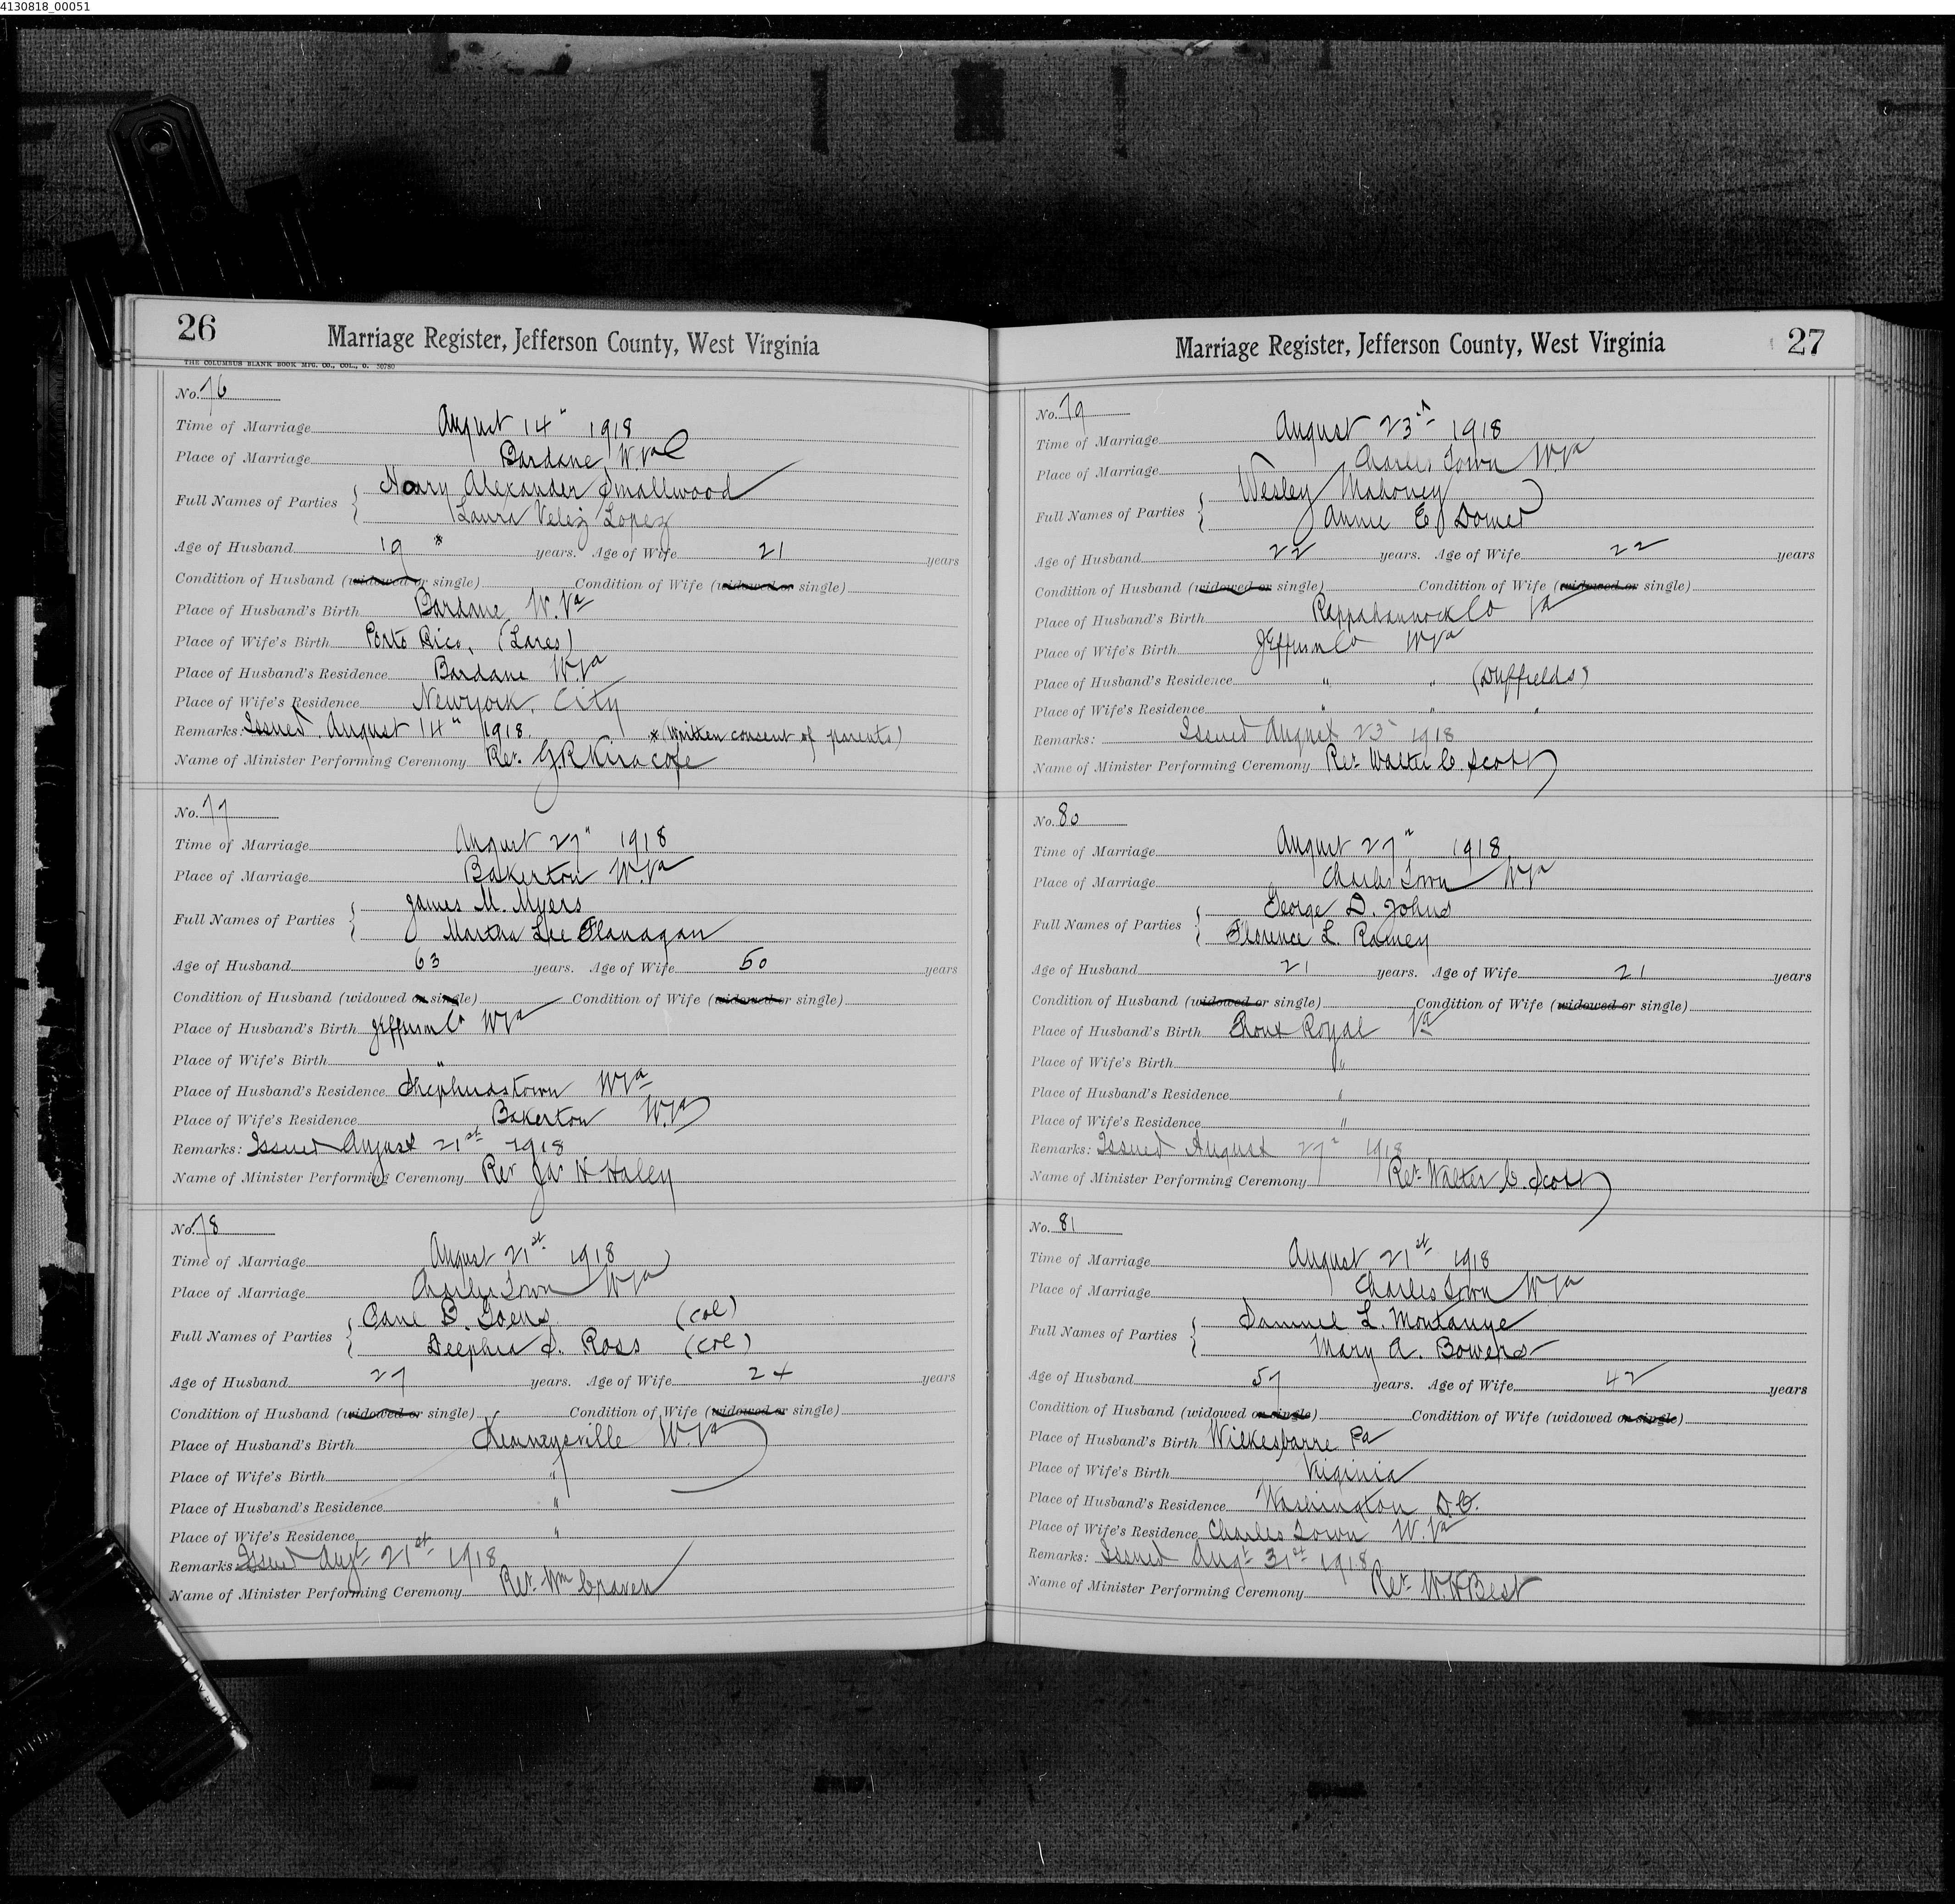 4130818_00051
26
Marriage Register, Jefferson County, West Virginia
THE COLUMBUS BLANK BOOK MFG. CO., COL., O. 50780
No. 76
Time of Marriage August 14" 1918
Place of Marriage Bardane W.Va
Full Names of Parties { Henry Alexander Smallwood
Laura Velez Lopez
Age of Husband 19 * years. Age of Wife 21 years
Condition of Husband (widowed or single) Condition of Wife (widowed or single)
Place of Husband's Birth Bardane W.Va
Place of Wife's Birth Porto Rico, (Lares)
Place of Husband's Residence Bardane W.Va
Place of Wife's Residence Newyork, City
Remarks: Issued August 14" 1918. *(Written consent of parents)
Name of Minister Performing Ceremony Rev. G.R. Kiracofe
No. 77
Time of Marriage August 27" 1918
Place of Marriage Bakerton W.Va
Full Names of Parties { James M. Myers
Martha Lee Flanagan
Age of Husband 63 years. Age of Wife 50 years
Condition of Husband (widowed or single) Condition of Wife (widowed or single)
Place of Husband's Birth Jefferson Co WVa
Place of Wife's Birth "
Place of Husband's Residence Shepherdstown WVa
Place of Wife's Residence Bakerton W.Va
Remarks: Issued August 21st 1918
Name of Minister Performing Ceremony Rev Jas H Haley
No. 78
Time of Marriage August 21st 1918
Place of Marriage Charles Town WVa
Full Names of Parties { B. Goens (col)
S. Ross (col)
Age of Husband 27 years. Age of Wife 24 years
Condition of Husband (widowed or single) Condition of Wife (widowed or single)
Place of Husband's Birth Kearneysville W.Va
Place of Wife's Birth "
Place of Husband's Residence "
Place of Wife's Residence "
Remarks: Issued Augt 21st 1918
Name of Minister Performing Ceremony Rev. Wm Craven
27
Marriage Register, Jefferson County, West Virginia
No. 79
Time of Marriage August 23rd 1918
Place of Marriage Charles Town WVa
Full Names of Parties { Wesley Mahoney
Annie E Domer
Age of Husband 22 years. Age of Wife 22 years
Condition of Husband (widowed or single) Condition of Wife (widowed or single)
Place of Husband's Birth Rappahannock Co Va
Place of Wife's Birth Jefferson Co WVa
Place of Husband's Residence " " (Duffields)
Place of Wife's Residence " " "
Remarks: Issued August 23" 1918
Name of Minister Performing Ceremony Rev. Walter C. Scott
No. 80
Time of Marriage August 27" 1918
Place of Marriage Charles Town WVa
Full Names of Parties { George D. Johns
Florence L. Ramey
Age of Husband 21 years. Age of Wife 21 years
Condition of Husband (widowed or single) Condition of Wife (widowed or single)
Place of Husband's Birth Front Royal Va
Place of Wife's Birth "
Place of Husband's Residence "
Place of Wife's Residence "
Remarks: Issued August 27" 1918
Name of Minister Performing Ceremony Rev. Walter C. Scott
No. 81
Time of Marriage August 21st 1918
Place of Marriage Charles Town WVa
Full Names of Parties { Samuel L. Montanye
Mary A. Bowers
Age of Husband 57 years. Age of Wife 42 years
Condition of Husband (widowed or single) Condition of Wife (widowed or single)
Place of Husband's Birth Wilkesbarre Pa
Place of Wife's Birth Virginia
Place of Husband's Residence Washington D.C.
Place of Wife's Residence Charles Town W.Va
Remarks: Issued Augt 31st 1918
Name of Minister Performing Ceremony Rev. W.H Best